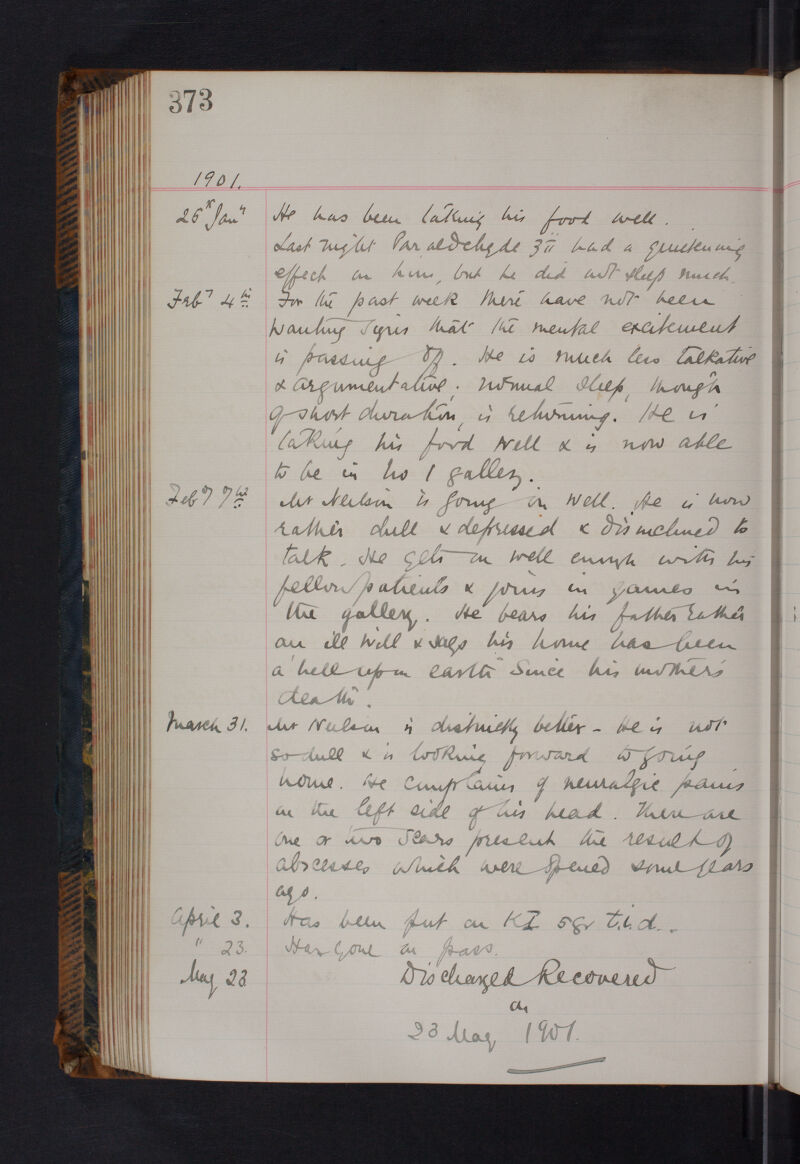 373
1901.
26th Jany He has been taking his food well.
Last night Paraldehyde ʒii had a quietening
effect on him, but he did not sleep much.
Feby 4th For the past week there have not been
wanting signs that the mental excitement
is passing off. He is much less talkative
& argumentative; normal sleep, though
of short duration, is returning. He is
taking his food well & is now able
to be in No 1 gallery.
Feby 7th Mr Neilson is going on well. He is now
rather dull & depressed & disinclined to
talk. He gets on well enough with his
fellow patients & joins in games in
the gallery. He bears his father rather
an ill will & says his home has been
a "hell upon earth" since his mother's
death.
March 31. Mr Neilson is distinctly better - He is not
so dull & is looking forward to going
home. He complains of neuralgic pains
in the left side of his head. There are
one or two scars present the result of
abscesses which were opened some years
ago.
April 3. Has been put on KI 5gr t.i.d.
" 23. Has gone on pass.
May 23 Discharged Recovered
on
23 May 1901.